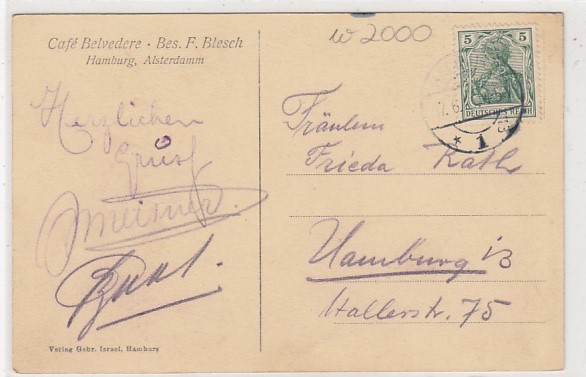 Café Belvedere · Bes. F. Blesch
Hamburg, Alsterdamm
W 2000
5 5
DEUTSCHES REICH
* 1
Herzlichen
Gruss
Fräulein
Frieda Kath
Hamburg 13
Hallerstr. 75
Verlag Gebr. Israel, Hamburg